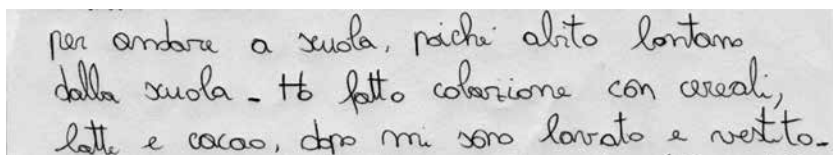 per andare a scuola, poiché abito lontano
dalla scuola - Ho fatto colazione con cereali,
latte e cacao, dopo mi sono lavato e vestito-